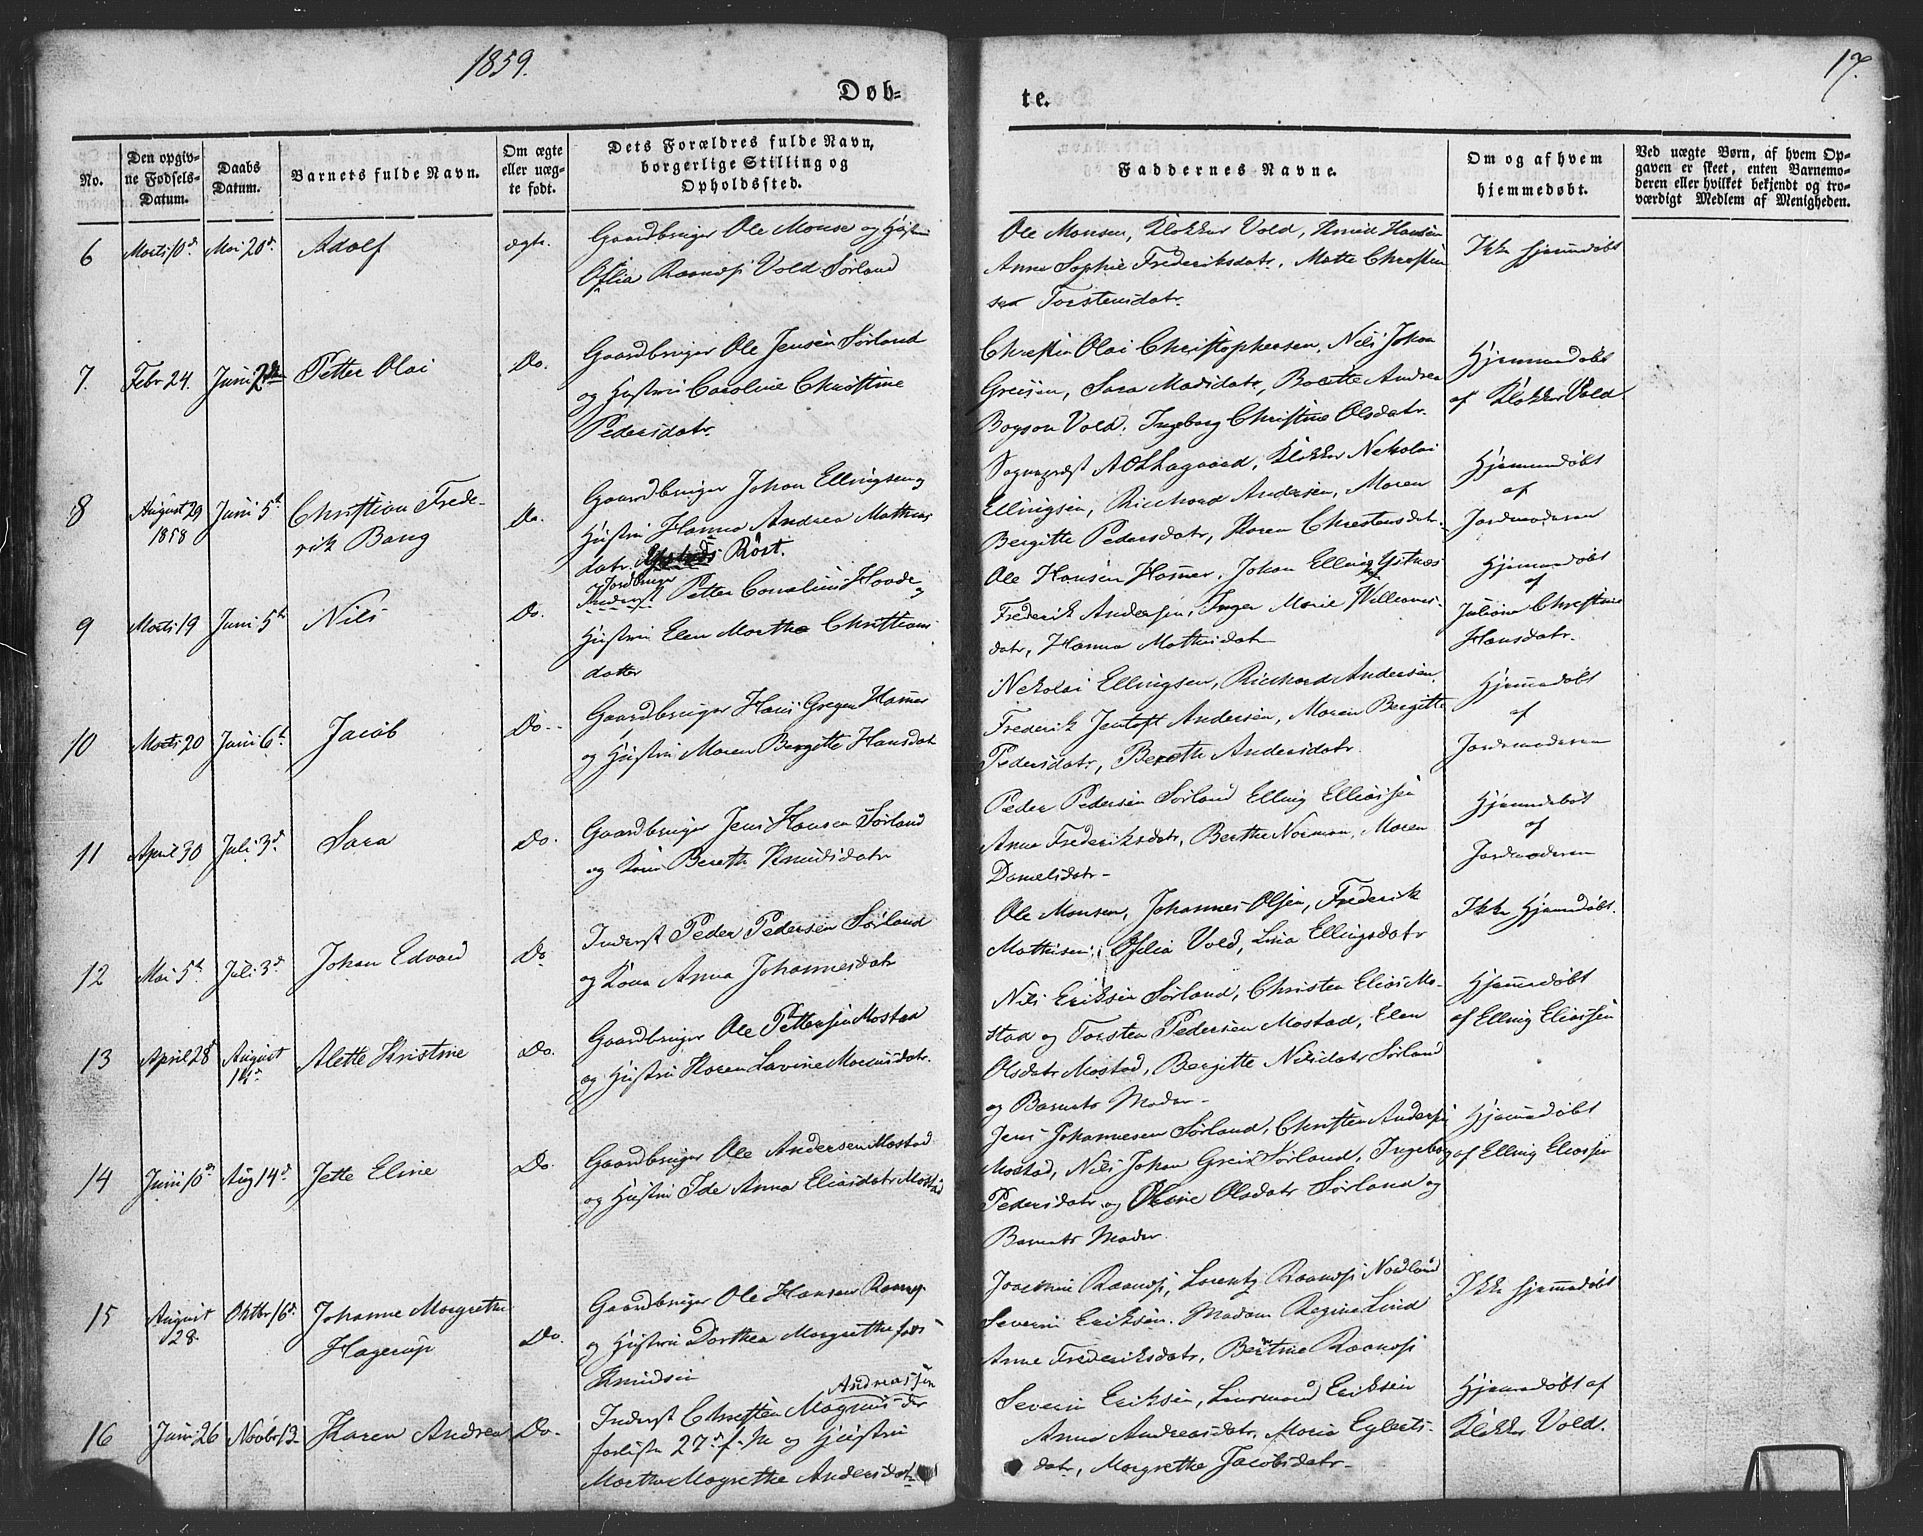 1859.
17.
Døb-
te.
No.
Den opgiv-
ne Fødsels-
Datum.
Daabs
Datum.
Barnets fulde Navn.
Om ægte
eller uæg-
te født.
Dets Forældres fulde Navn,
borgerlige Stilling og
Opholdssted.
Faddernes Navne.
Om og af hvem
hjemmedøbt.
Ved uægte Børn, af hvem Op-
gaven er skeet, enten Barnemo-
deren eller hvilket bekjendt og tro-
værdigt Medlem af Menigheden.
6
Marts 10d.
Mai 20d.
Adolf
ægte.
Gaardbruger Ole Monsen og Hustru
Ofelia Vold Sørland
Ole Monsen, Klokker Vold, Hansen
Anna Sophie Frederiksdatr., Mette Christin
Torstensdatr.
Ikke hjemmedøbt
7.
Febr 24.
Juni
Petter Olai
Do.
Gaardbruger Ole Jensen Sørland
og Hustru Caroline Christine
Pedersdatr.
Christen Olai Christophersen, Nils Johan
Greisen, Sara Madsdatr, Borette Andrea
Vold. Ingeborg Christine Olsdatr.
Hjemmedøbt
af Klokker Vold
8
August 29
1858
Juni 5t
Christian Frede-
rik Bang
Do.
Gaardbruger Johan Ellingsen og
Hustru Hanna Andrea Mathias
datr. Røst.
Sognepræst Klokker Nekolai
Ellingsen, Richard Andersen, Maren
Bergitte Pedersdatr, Karen Christensdatr.
Hjemmedøbt
af
Jordmoderen
9
Marts 19
Juni 5th
Nils
Do.
Jordbruger
Petter Cornelius og
Hustru Elen Marthe Christians
datter
Ole Hansen Hamer, Johan Elling Ystnes
Frederik Andersen, Inger Marie Williams-
datr, Hanna Mathisdatr
Hjemmedøbt
af
Juliane Christine
Hansdatr.
10
Marts 20
Juni 6t.
Jacob
Do.
Gaardbruger Hans Gregen Hamer
og Hustru Maren Bergitte Hansdatr
Nekolai Ellingsen, Richard Andersen
Frederik Jentoft Andersen, Maren Bergitte
Pedersdatr, Bereth Andersdatr.
Hjemmedøbt
af
Jordmoderen
11
April 30
Juli 3d.
Sara
Do.
Gaardbruger Jens Hansen Sørland
og Kone Bereth Knudsdatr
Peder Pedersen Sørland Elling Elliassen
Anna Frederiksdatr, Berthe Norman, Maren
Danielsdatr
Hjemmedøbt
af
Jordmoderen
12
Mai 5t
Juli 3d
Johan Edvard
Do.
Inderst Peder Pedersen Sørland
og Kone Anna Johannesdatr
Ole Monsen, Johannes Olsen, Frederik
Mathisen, Ofelia Vold, Lina Ellingsdatr
Ikke Hjemmedøbt.
13
April 28d
August
14d.
Alette Kristine
Do.
Gaardbruger Ole Pettersen Mostad
og Hustru Karen Lavine Moensdatr.
Nils Eriksen Sørland, Christen Elias Mo-
stad og Torsten Pedersen Mostad, Elen
Olsdatr Mostad, Bergitte Nilsdatr Sørland
og Barnets Moder
Hjemmedøbt
af Elling Eliassen
14
Juni 10d
Aug 14d.
Jette Eline
Do.
Gaardbruger Ole Andersen Mostad
og Hustru Ide Anna Eliasdatr Mostad
Jens Johannesen Sørland, Christen Andersen
Mostad, Nils Johan Greis Sørland, Ingeborg
Pedersdatr. og Oline Olsdatr Sørland og
Barnets Moder.
Hjemmedøbt
af Elling Eliassen
15
August
28.
Oktbr 16d.
Johanne Margrethe
Hagerup
Do.
Gaardbruger Ole Hansen
og Hustru Dorthea Margrethe født
Knudsen
Nordland
Severin Eriksen. Madam Regine Lind
Anne Frederiksdatr,
Ikke hjemmedøbt
16
Juni 26
Novbr 13
Karen Andrea
Do.
Andreassen
Inderst Christen Magnus der
forliste 27d f. M og Hustru
Martha Magrethe Andersdatr
Severin Eriksen, Eriksen
Anna Andreasdatr, Maria Egberts-
datr, Margrethe Jacobsdatr.
Hjemmedøbt af
Klokker Vold.